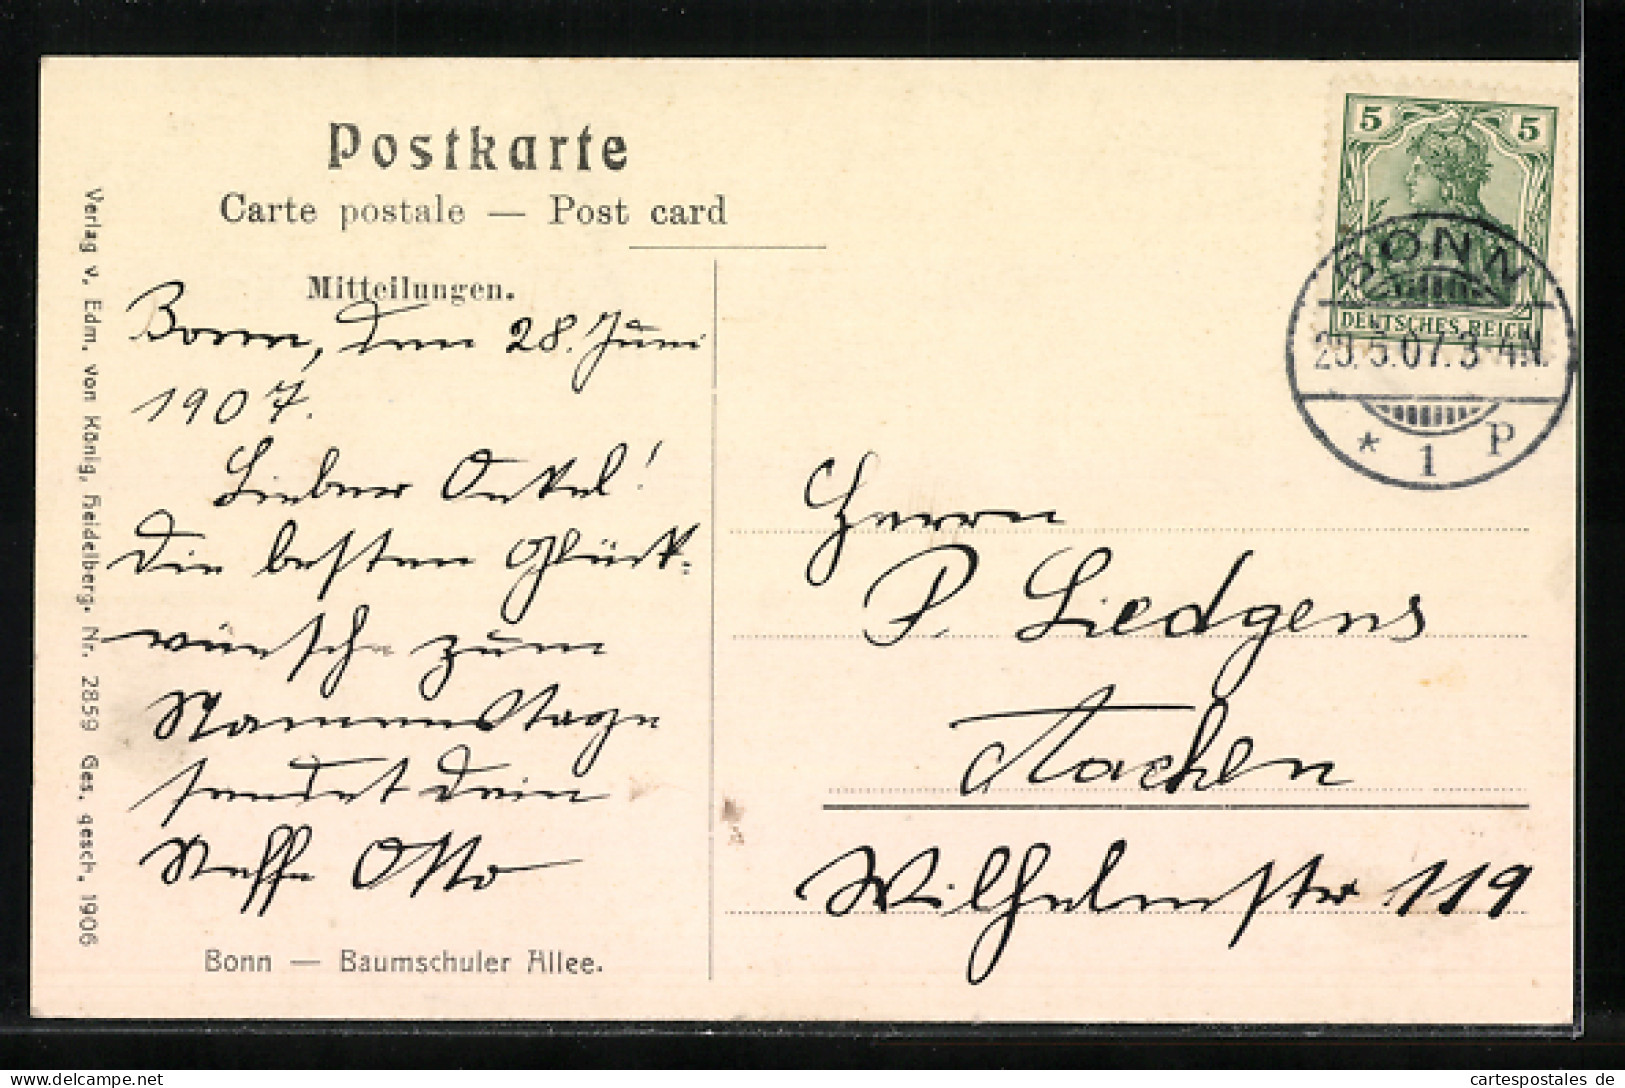 Postkarte
Carte postale — Post card
Mitteilungen.
Bonn, den 28. Juni
1907.
Lieber Onkel!
Die besten Glück-
wünsche zum
Namenstage
sendet Dein
Neffe Otto
Bonn — Baumschuler Allee.
Verlag v. Edm. von König, Heidelberg. Nr. 2859 Ges. gesch. 1906
5 5
DEUTSCHES REICH
BONN
07. 3-4N.
* 1 P
Herrn
P. Liedgens
Aachen
Wilhelmstr 119
cartespostales de